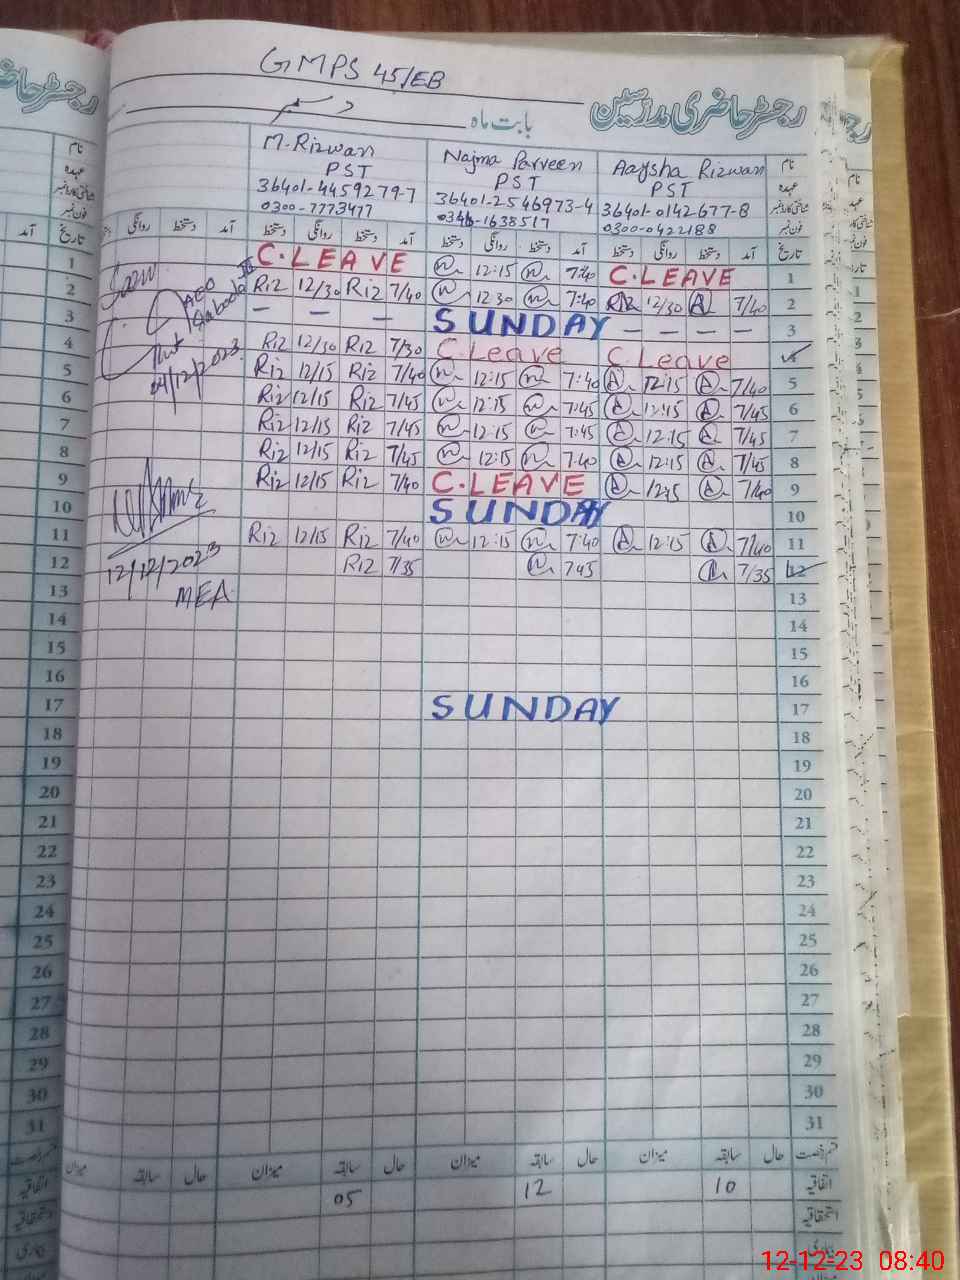 GMPS 45/EB
رجسٹر حاضری مدرسین
بابت ماہ دسمبر
نام M. Rizwan Najma Parveen Aaysha Rizwan نام
عہدہ PST PST PST عہدہ
شناختی کارڈ نمبر 36401-4459279-7 36401-2546973-4 36401-0142677-8 شناختی کارڈ نمبر
فون نمبر 0300-7773477 0346-1638517 0300-0422188 فون نمبر
آمد تاریخ روانگی دستخط آمد دستخط روانگی دستخط آمد دستخط روانگی دستخط آمد دستخط روانگی دستخط آمد تاریخ
1 C.LEAVE 12:15 7:40 C.LEAVE 1
2 AEO Riz 12/30 Riz 7/40 12:30 7:40 12/30 A 7/40 2
3 — — — — SUNDAY — — — — 3
4 Riz 12/30 Riz 7/30 C.Leave C.Leave 4
5 04/12/2023 Riz 12/15 Riz 7/40 12:15 7:40 A 12:15 A 7/40 5
6 Riz 12/15 Riz 7/45 12:15 7:45 A 12:15 A 7/45 6
7 Riz 12/15 Riz 7/45 12:15 7:45 A 12:15 A 7/45 7
8 Riz 12/15 Riz 7/45 12:15 7:40 A 12:15 A 7/45 8
9 Riz 12/15 Riz 7/40 C.LEAVE A 12:15 A 7/40 9
10 SUNDAY 10
11 Riz 12/15 Riz 7/40 12:15 7:40 A 12:15 A 7/40 11
12 12/12/2023 Riz 7/35 7:45 7/35 12
13 MEA 13
14 14
15 15
16 16
17 SUNDAY 17
18 18
19 19
20 20
21 21
22 22
23 23
24 24
25 25
26 26
27 27
28 28
29 29
30 30
31 31
میزان سابقہ حال میزان سابقہ حال میزان سابقہ حال میزان سابقہ حال قسم رخصت
اتفاقیہ 05 12 10 اتفاقیہ
استحقاقیہ استحقاقیہ
بیماری بیماری
میزان میزان
12-12-23 08:40